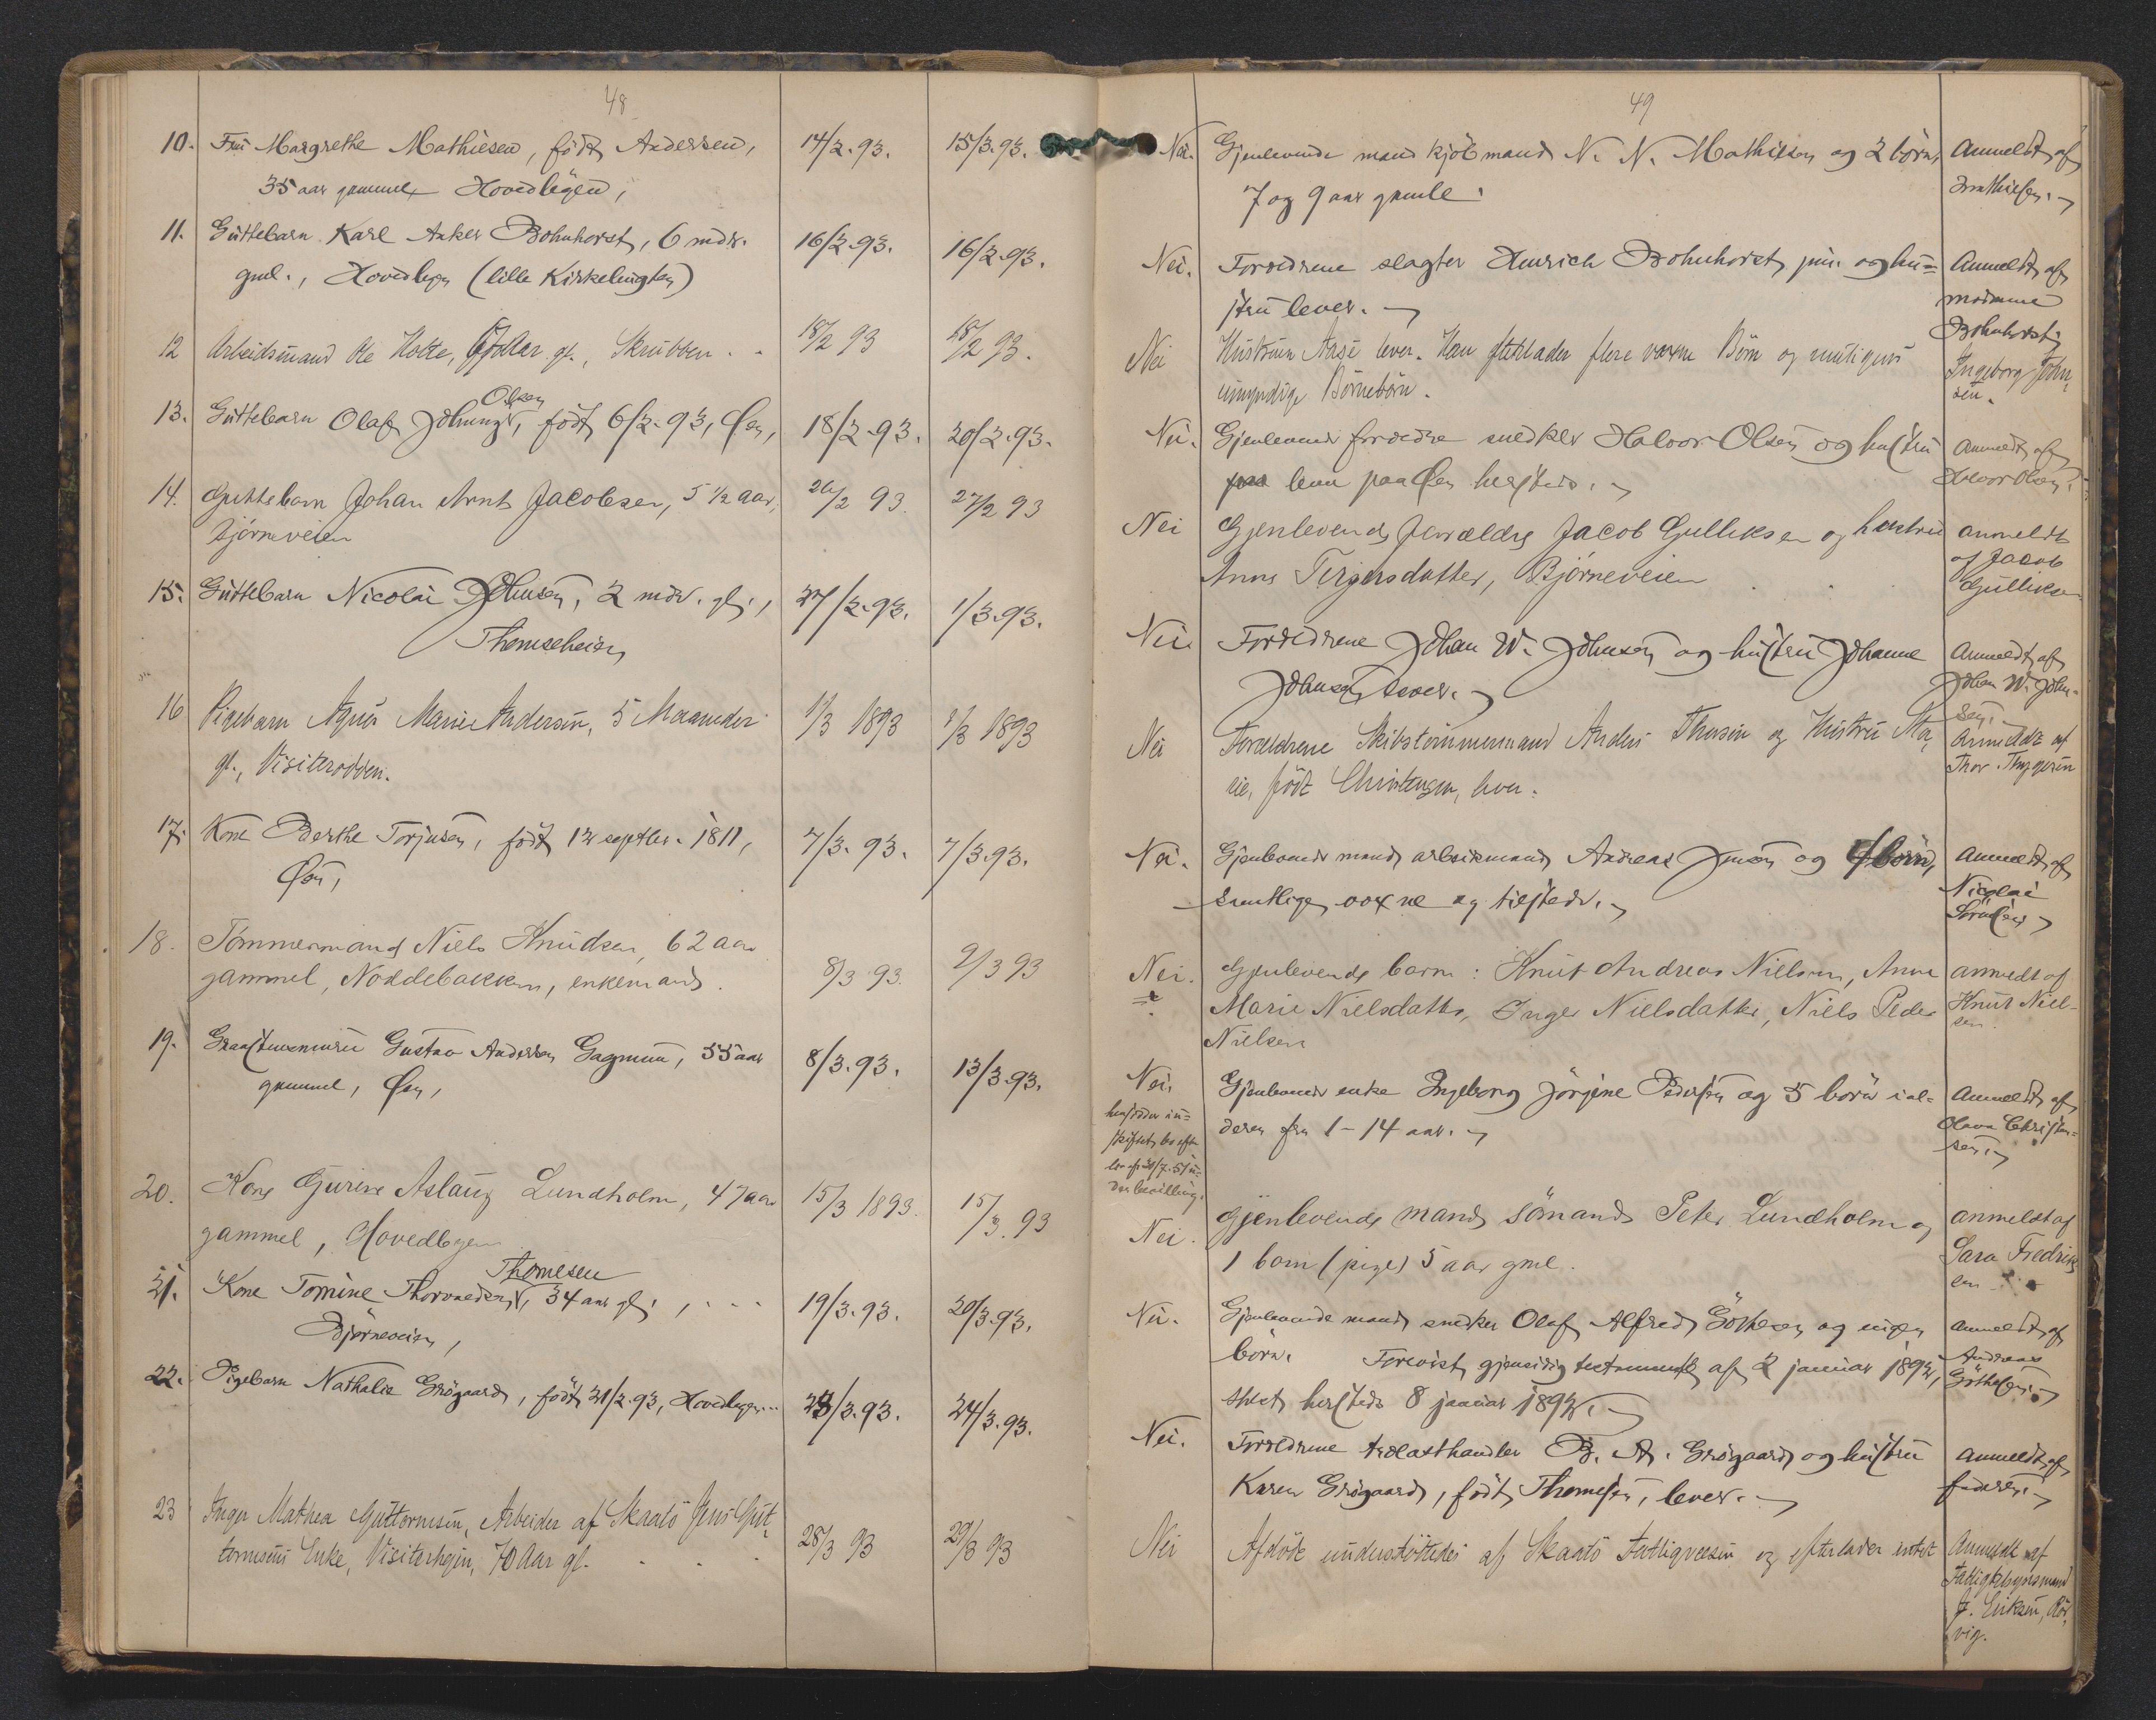 48
10. Fru Margrethe Mathiesen, født Andersen, 14/2.93. 15/2.93.
35 aar gammel, Hovedbyen,
11. Guttebarn Karl Anker Bohnhorst, 6 mdr. 16/2.93. 16/2.93.
gml., Hovedbyen (lille Kirkelingten)
12 Arbeidsmand Ole Holte, aar gl., Skrubben . . 18/2 93 18/2 93.
Olsen
13. Guttebarn Olaf Johnny, født 6/2-93, Øen, 18/2.93. 20/2.93.
14. Guttebarn Johan Arnt Jacobsen, 5 1/2 aar, 26/2 93. 27/2 93
Bjørneveien
15. Guttebarn Nicolai Johnsen, 2 mdr. gl., 27/2.93. 1/3.93.
Thomseheien
16 Pigebarn Agnes Marie Andersen, 5 Maaneder 1/3 1893 1/3 1893
gl., Visiterodden.
17. Kone Berthe Torjusen, født 12 septbr. 1811, 7/3. 93. 7/3.93.
Øen,
18. Tømmermand Niels Knudsen, 62 aar 8/3 93. 9/3 93
gammel, Nøddebakken, enkemand.
19. Gustav Andersen Gagnum, 55 aar 8/3.93. 13/3.93.
gammel, Øen,
20. Kone Gurine Aslaug Lundholm, 47 aar 15/3 1893. 15/3. 93
gammel, Hovedbyen
Thomesen
21. Kone Tomine Thorvaldsen, 34 aar gl., . . . 19/3.93. 20/3.93.
Bjørneveien,
22. Pigebarn Nathalie Grøgaard, født 21/2.93, Hovedbyen... 23/3.93. 24/3.93.
23 Inger Mathea Guttormsen, Arbeider af Skaatø Jens Gut- 28/3 93 29/3 93
tormsens Enke, Visiterheien, 70 Aar gl. . . .
49
Nei. Gjenlevende mand kjøbmand N. N. Mathisen og 2 børn, Anmeldt af
7 og 9 aar gamle. Mathiesen.
Nei. Forældrene slagter Hinrich Bohnhorst jun. og hu- Anmeldt af
stru lever. madame
Bohnhorst.
Nei Hustruen Aase lever. Han efterlader flere voxne Børn og muligens Ingeborg John-
umyndige Børnebørn. sen.
Nei. Gjenlevende forældre snedker Halvor Olsen og hustru Anmeldt af
leve paa Øen hersteds. Halvor Olsen.
Nei Gjenlevende forældre Jacob Gulliksen og hustru anmeldt
Anne Tergersdatter, Bjørneveien . . af Jacob
Gulliksen
Nei Forældrene Johan W. Johnsen og hustru Johanne Anmeldt af
Johnsen lever. Johan W. John-
sen.
Nei Forældrene Skibstømmermand Anders Thorsen og Hustru Ma- Anmeldt af
rie, født Christensen, lever. Thor Thygesen
Nei. Gjenlevende mand arbeidsmand Andreas Jensen og børn, Anmeldt af
samtlige voxne og tilstede. Nicolai
Sørensen
Nei. Gjenlevende barn: Knut Andreas Nielsen, Anne anmeldt af
Marie Nielsdatter, Inger Nielsdatter, Niels Peder Knut Niel-
Nielsen sen.
Nei. Gjenlevende enke Ingeborg Jørgine Pedersen og 5 børn i al- Anmeldt af
hensidder i u-
skiftet bo efter
deren fra 1-14 aar. Olava Christen-
sen.
lov af 30/7.51 u-
den bevilling.
Nei. Gjenlevende mand sømand Peter Lundholm og anmeldt af
1 barn (pige) 5 aar gml. Sara Fredrik-
sen
Nei. Gjenlevende mand snedker Olaf Alfred Gøthesen og ingen Anmeldt af
børn. Forevist gjensidig testament af 2 januar 1892, Andreas
hersteds 8 januar 1892. Gøthesen.
Nei. Forældrene trælasthandler B. A. Grøgaard og hustru Anmeldt af
Karen Grøgaard, født Thomesen, lever. faderen.
Nei Afdøde understøttedes af Skaatø Fattigvæsen og efterlader intet Anmeldt af
Fattigtilsynsmand
J. Eriksen, Rør-
vig.